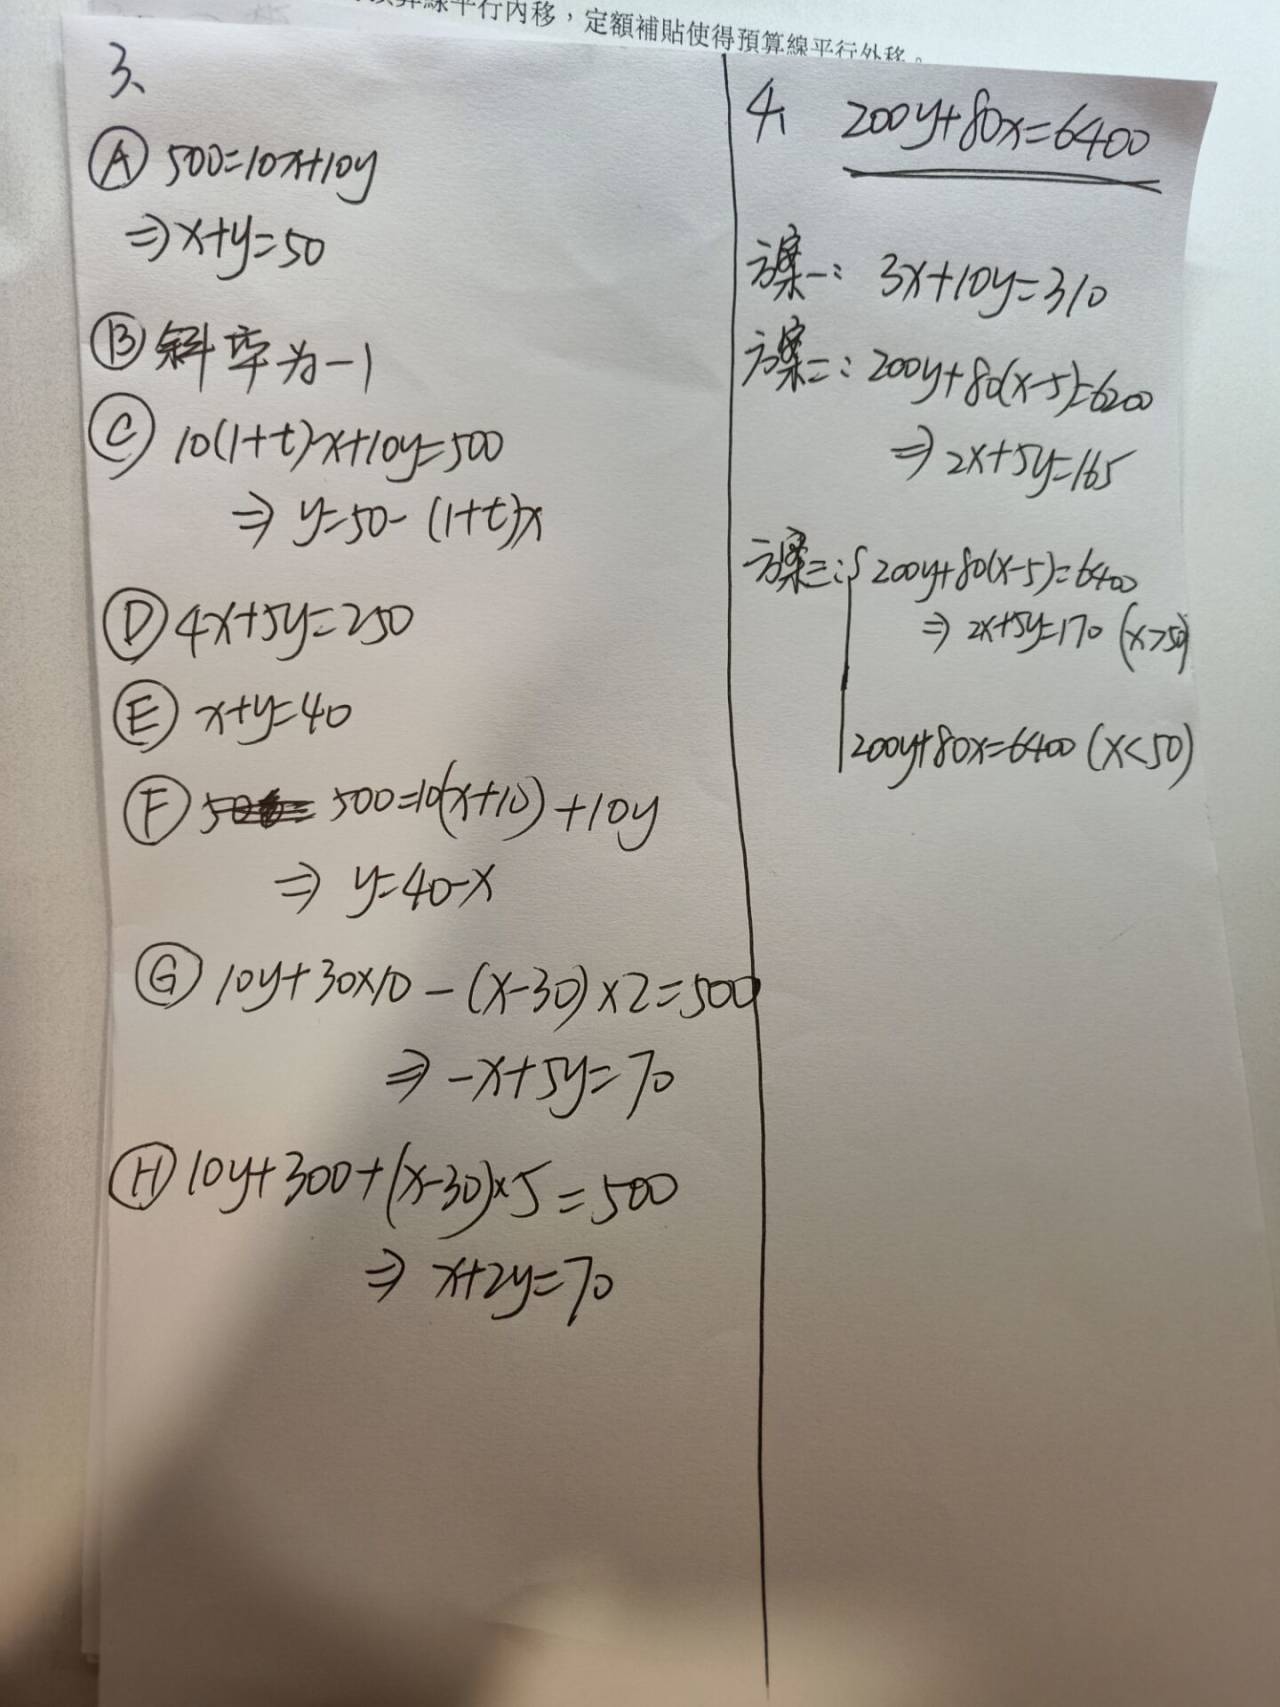 預算線平行內移，定額補貼使得預算線平行外移。
3、
Ⓐ 500=10x+10y
⇒x+y=50
Ⓑ 斜率为-1
Ⓒ 10(1+t)·x+10y=500
⇒ y=50-(1+t)x
Ⓓ 4x+5y=250
Ⓔ x+y=40
Ⓕ 500=10(x+10)+10y
⇒ y=40-x
Ⓖ 10y+30×10-(x-30)×2=500
⇒ -x+5y=70
Ⓗ 10y+300+(x-30)×5=500
⇒ x+2y=70
4、 200y+80x=6400
方案一: 3x+10y=310
方案二: 200y+80(x-5)=6200
⇒ 2x+5y=165
方案三: { 200y+80(x-5)=6400
⇒ 2x+5y=170 (x>50)
200y+80x=6400 (x<50)